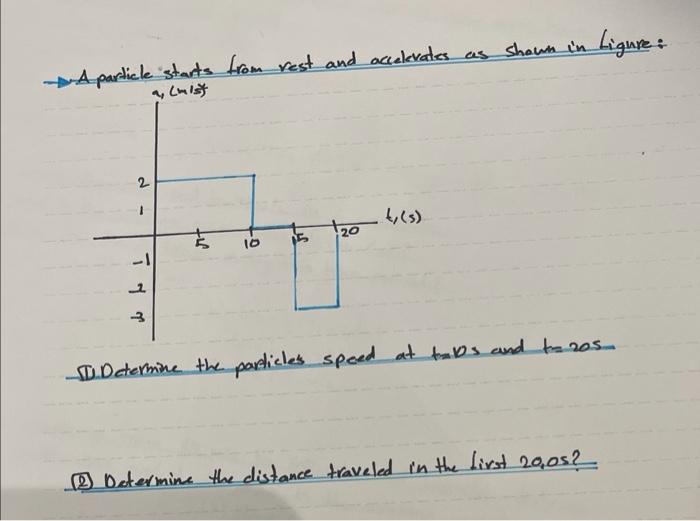 A particle starts from rest and accelerates as shown in figure:
a, (m/s²)
2
1
t, (s)
5
10
15
20
-1
-2
-3
① Determine the particles speed at t=10s and t=20s
② Determine the distance traveled in the first 20,0s?